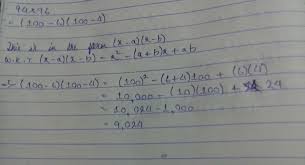 94 x 96
= (100 - 6)(100 - 4)
This is in the form (x-a)(x-b)
W.K.T (x-a)(x-b) = x² - (a+b)x + ab
∴ (100-6)(100-4) = (100)² - (6+4)100 + (6)(4)
= 10,000 - (10)(100) + 24
= 10,024 - 1,000
= 9,024